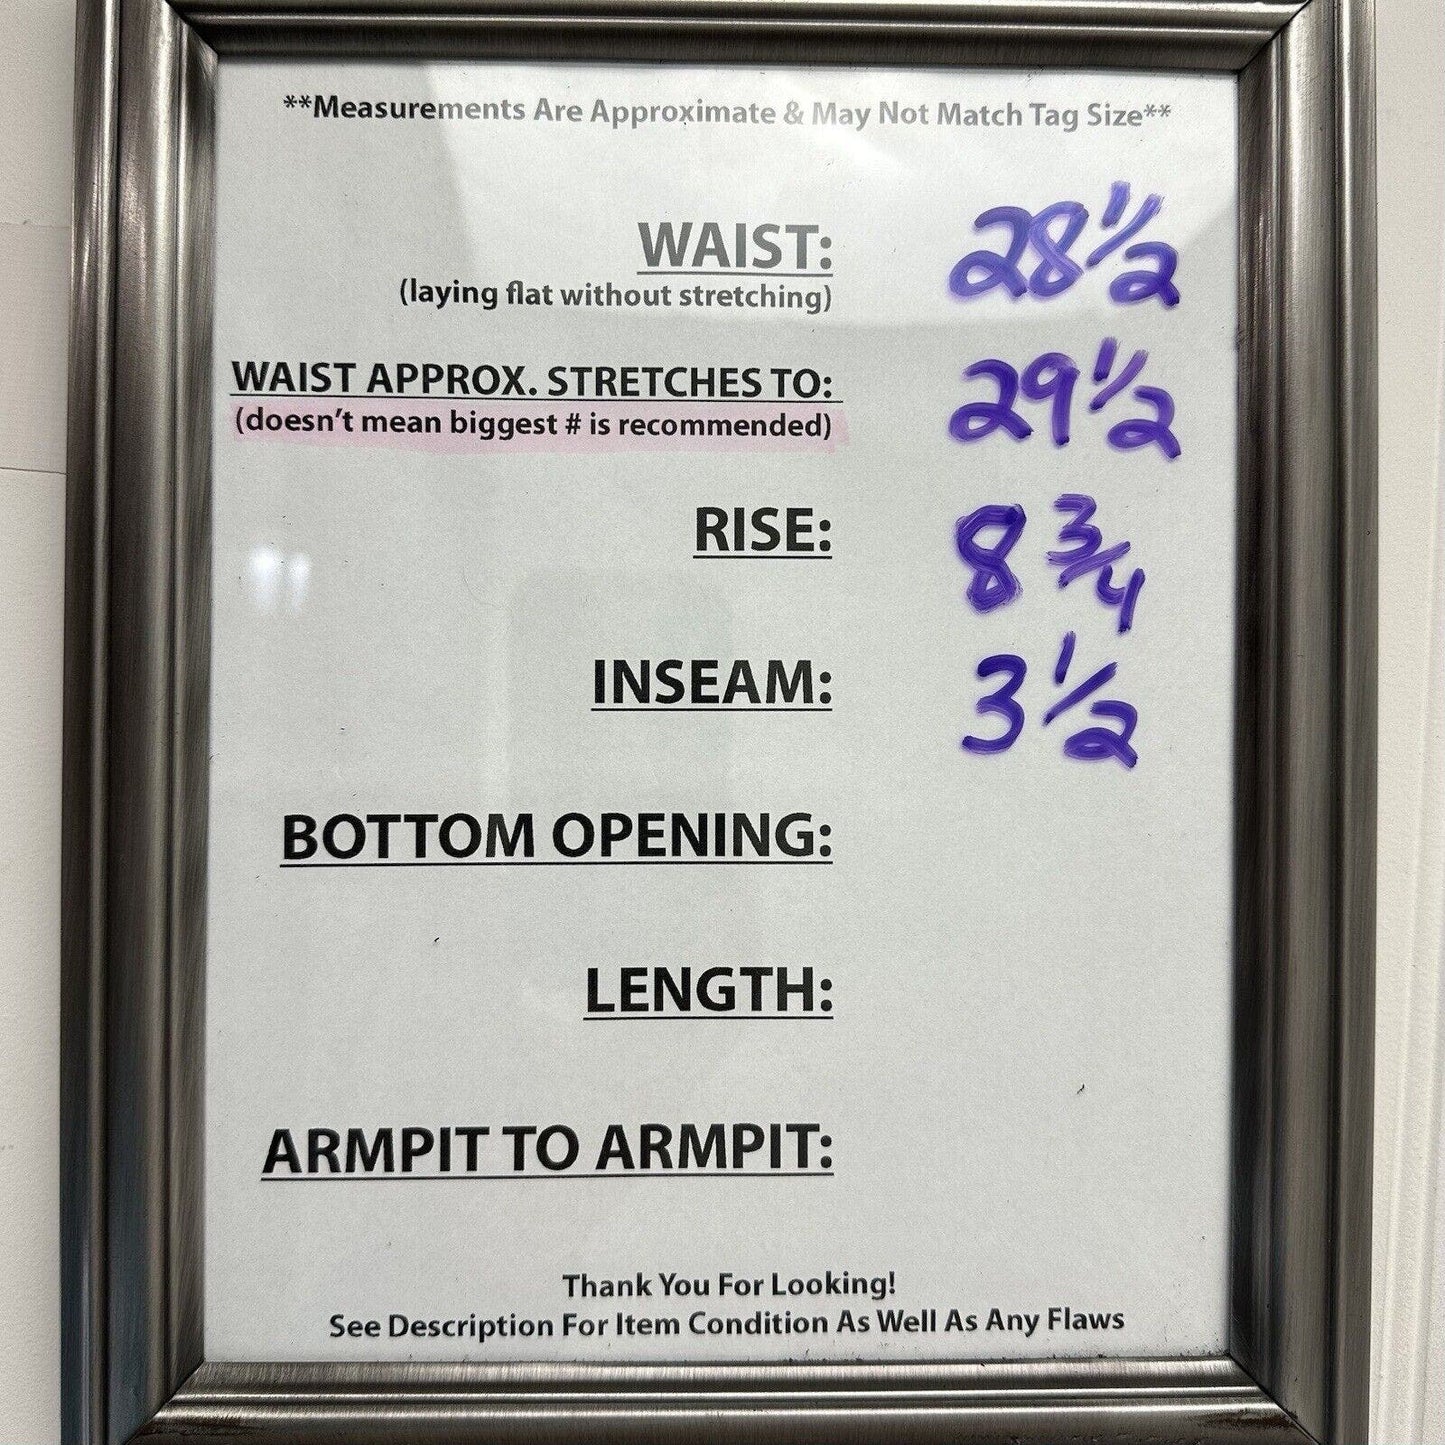 **Measurements Are Approximate & May Not Match Tag Size**
WAIST: 28 1/2
(laying flat without stretching)
WAIST APPROX. STRETCHES TO: 29 1/2
(doesn't mean biggest # is recommended)
RISE: 8 3/4
INSEAM: 3 1/2
BOTTOM OPENING:
LENGTH:
ARMPIT TO ARMPIT:
Thank You For Looking!
See Description For Item Condition As Well As Any Flaws